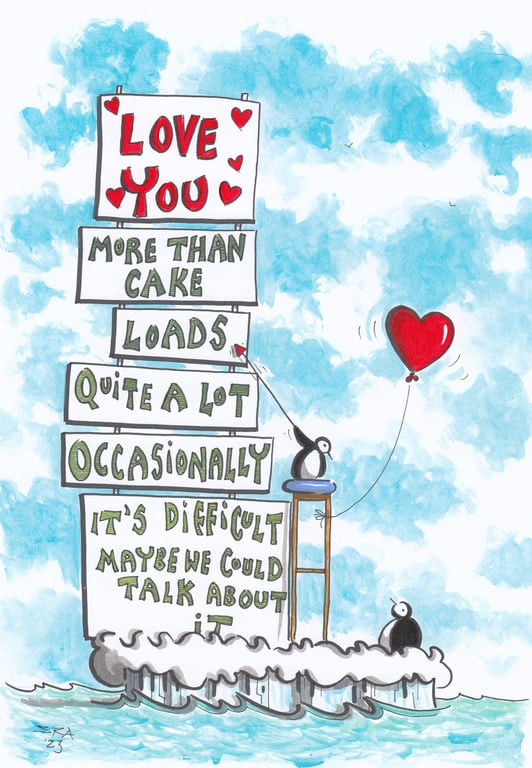 LOVE
YOU
MORE THAN
CAKE
LOADS
QUiTE A LOT
OCCASiONALLY
iT'S DiFFiCULT
MAYBE WE COULD
TALK ABOUT
iT
SKA
'23